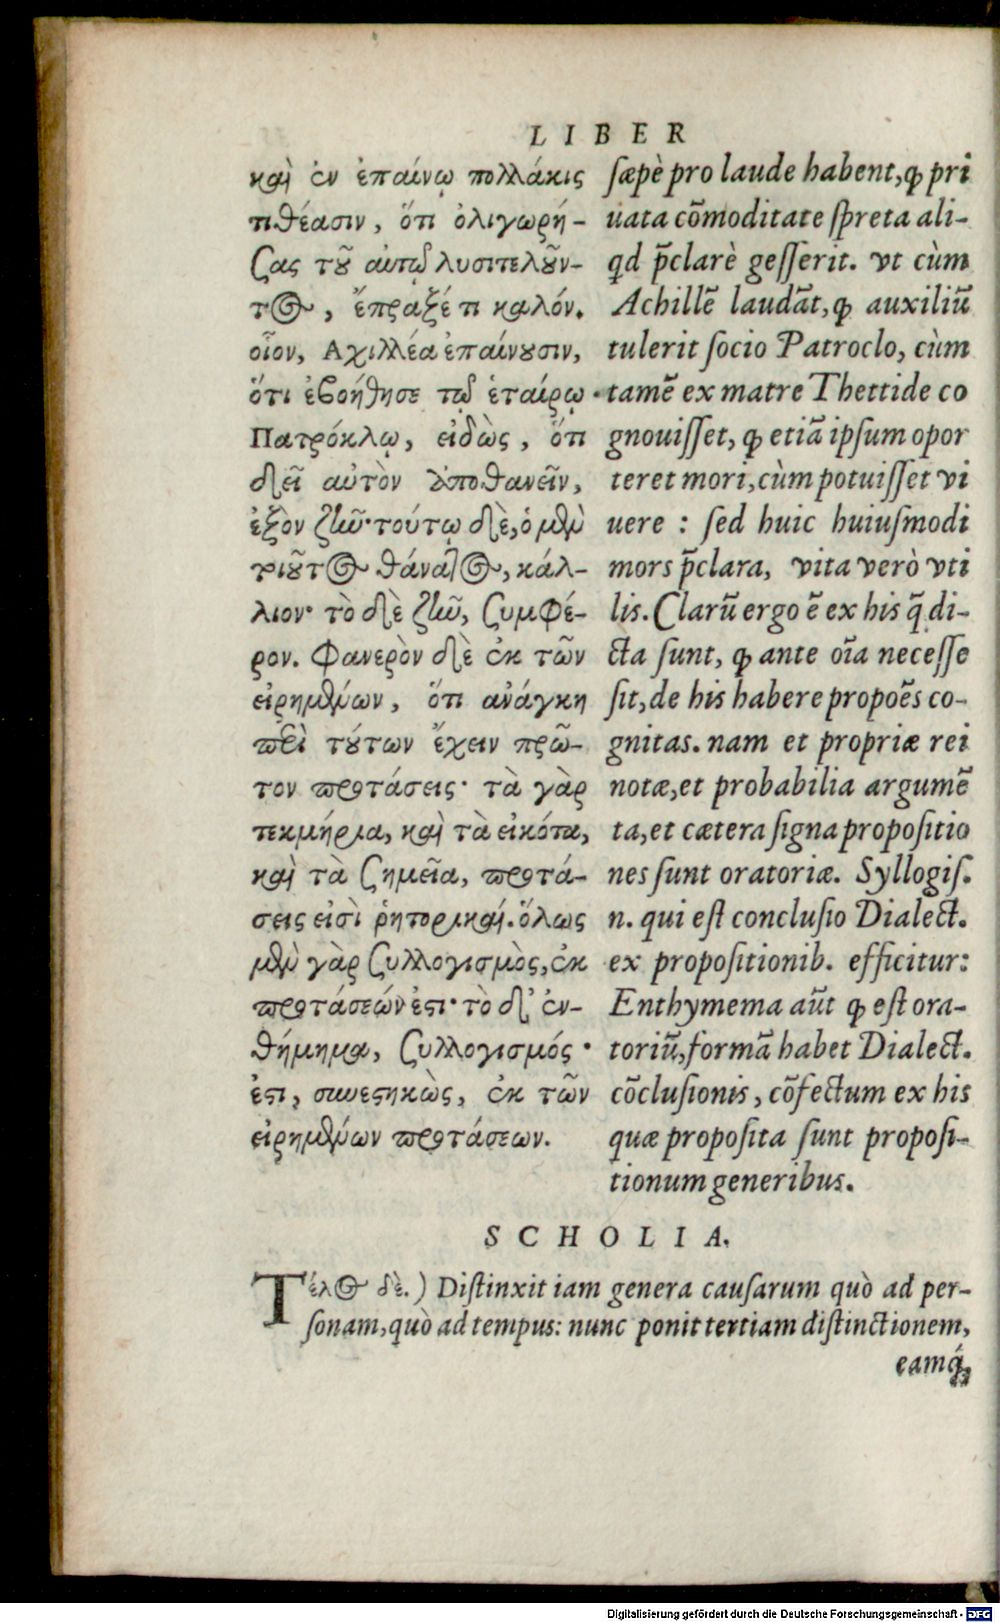 LIBER
καὶ ἐν ἐπαίνῳ πολλάκις
τιθέασιν, ὅτι ὀλιγωρή-
σας τοῦ αὐτῷ λυσιτελοῦν-
τος, ἔπραξέ τι καλόν.
οἷον, Αχιλλέα ἐπαίνουσιν,
ὅτι ἐβοήθησε τῷ ἑταίρῳ
Πατρόκλῳ, εἰδὼς, ὅτι
δεῖ αὐτὸν ἀποθανεῖν,
ἐξὸν ζῆν· τούτῳ δὲ, ὁ μὲν
τοιοῦτος θάνατος, κάλ-
λιον· τὸ δὲ ζῆν, συμφέ-
ρον. Φανερὸν δὲ ἐκ τῶν
εἰρημένων, ὅτι ἀνάγκη
περὶ τούτων ἔχειν πρῶ-
τον προτάσεις· τὰ γὰρ
τεκμήρια, καὶ τὰ εἰκότα,
καὶ τὰ σημεῖα, προτά-
σεις εἰσὶ ῥητορικαί. ὅλως
μὲν γὰρ συλλογισμὸς, ἐκ
προτάσεών ἐστι· τὸ δ' ἐν-
θήμημα, συλλογισμός
ἐστι, συνεστηκὼς, ἐκ τῶν
εἰρημένων προτάσεων.
sæpè pro laude habent, ꝙ pri
uata cōmoditate spreta ali-
qd p̄clarè gesserit. vt cùm
Achillē laudāt, ꝙ auxiliū
tulerit socio Patroclo, cùm
tamē ex matre Thettide co
gnouisset, ꝙ etiā ipsum opor
teret mori, cùm potuisset vi
uere : sed huic huiusmodi
mors p̄clara, vita verò vti
lis. Clarū ergo ē ex his q̄ di-
cta sunt, ꝙ ante oīa necesse
sit, de his habere propoēs co-
gnitas. nam et propriæ rei
notæ, et probabilia argumē
ta, et cætera signa propositio
nes sunt oratoriæ. Syllogis.
n. qui est conclusio Dialect.
ex propositionib. efficitur:
Enthymema aūt ꝙ est ora-
toriū, formā habet Dialect.
cōclusionis, cōfectum ex his
quæ proposita sunt proposi-
tionum generibus.
SCHOLIA.
Τέλος δὲ.) Distinxit iam genera causarum quò ad per-
sonam, quò ad tempus: nunc ponit tertiam distinctionem,
eamq́;
Digitalisierung gefördert durch die Deutsche Forschungsgemeinschaft - DFG